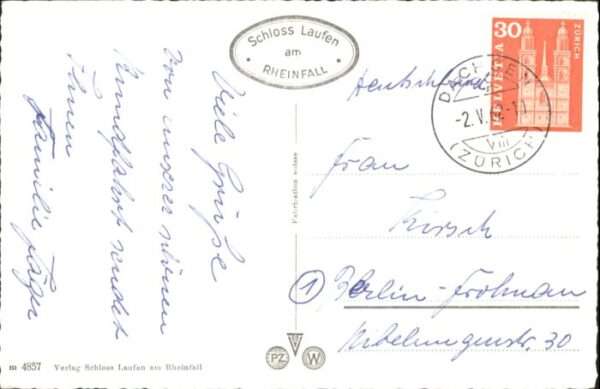 Schloss Laufen
am
RHEINFALL
Viele Grüße
von unserer schönen
Rundfahrt sendet
Ihnen
Familie Jäger
Fabrication suisse
30
HELVETIA
ZÜRICH
-2.V.
VIII
(ZÜRICH)
Deutschland
Frau
Kirsch
1 Berlin-Frohnau
Nibelungenstr. 30
PZ
W
m 4857 Verlag Schloss Laufen am Rheinfall